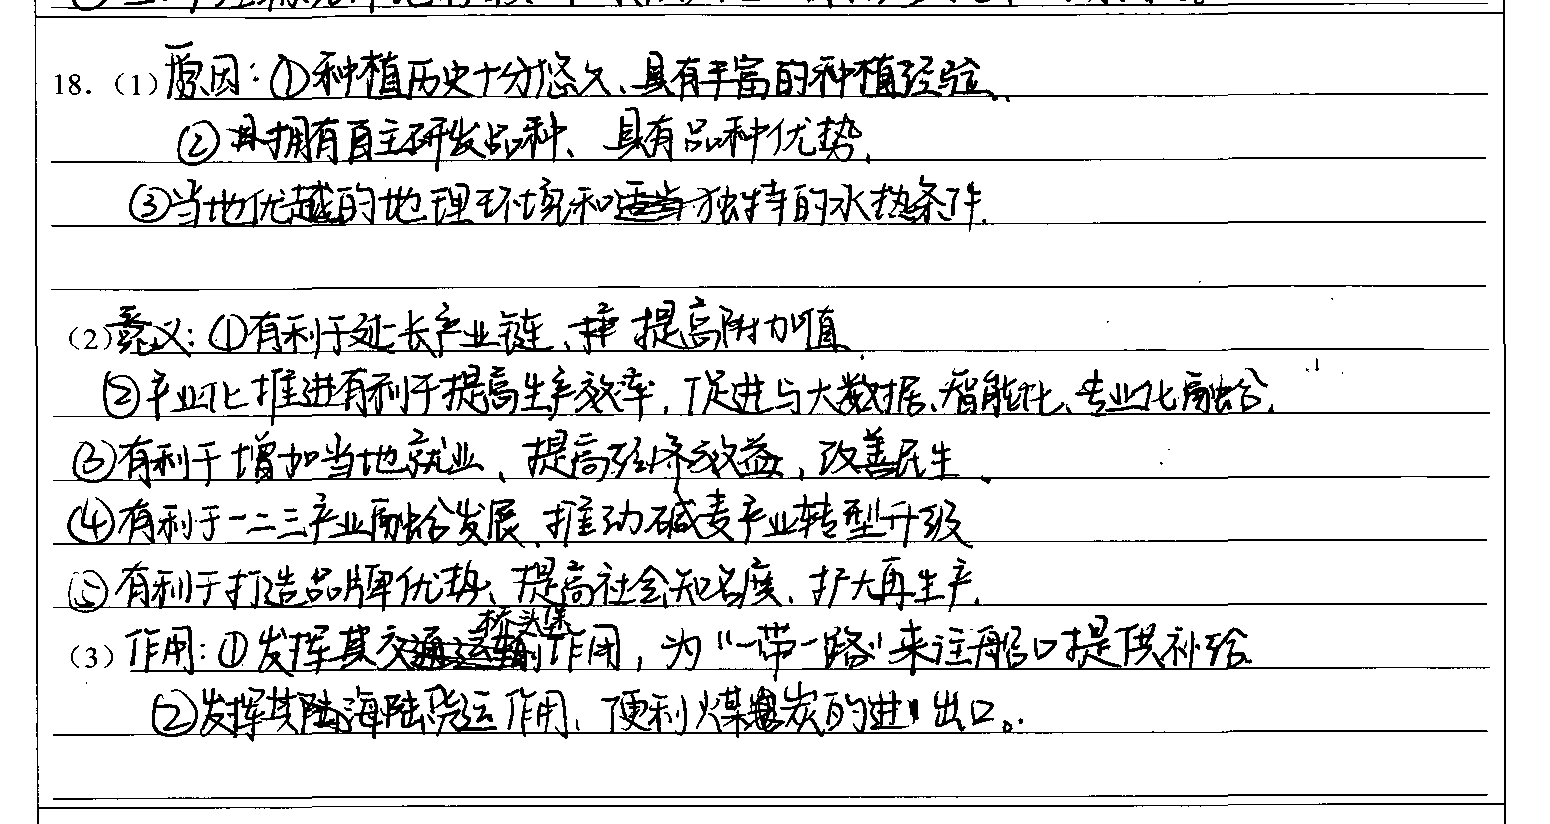 18.（1）原因：①种植历史十分悠久、具有丰富的种植经验、
②拥有自主研发品种、具有品种优势、
③当地优越的地理环境和独特的水热条件.
（2）意义：①有利于延长产业链、提高附加值
②产业化推进有利于提高生产效率，促进与大数据、智能化、专业化融合.
③有利于增加当地就业、提高经济效益，改善民生、
④有利于一二三产业融合发展、推动碱麦产业转型升级
⑤有利于打造品牌优势、提高社会知名度、扩大再生产.
桥头堡
（3）作用：①发挥其作用，为“一带一路”来往船口提供补给
②发挥其海陆作用、便利煤炭的进出口。